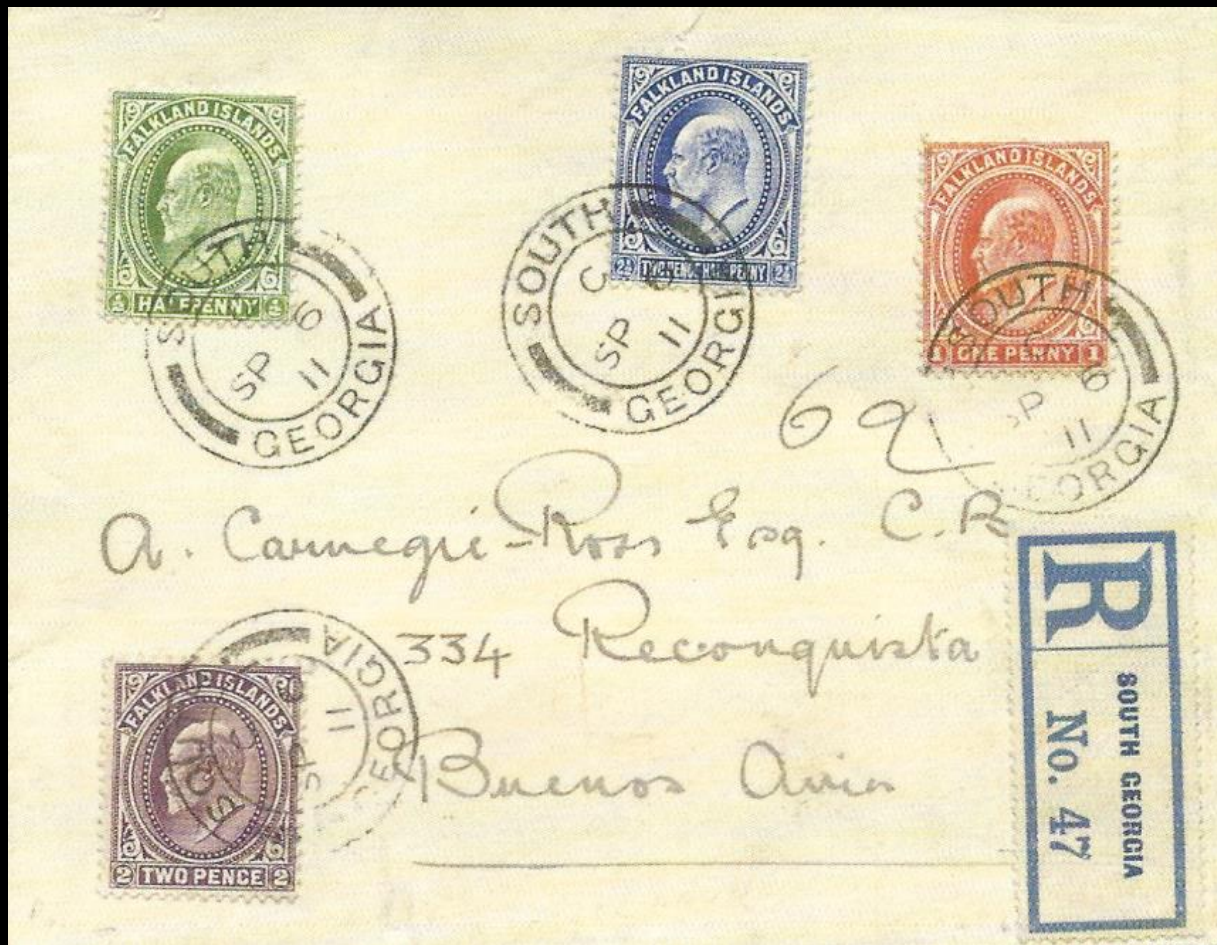 FALKLAND ISLANDS
½ HALFPENNY ½
SOUTH GEORGIA
SP 6
11
FALKLAND ISLANDS
2½ TWO PENCE HALFPENNY 2½
SOUTH GEORGIA
C
SP 6
11
FALKLAND ISLANDS
1 ONE PENNY 1
SOUTH GEORGIA
C
SP 6
11
A. Carnegie-Ross Esq. C.R
334 Reconquista
Buenos Aires
R
SOUTH GEORGIA
No. 47
FALKLAND ISLANDS
2 TWO PENCE 2
SOUTH GEORGIA
SP
11